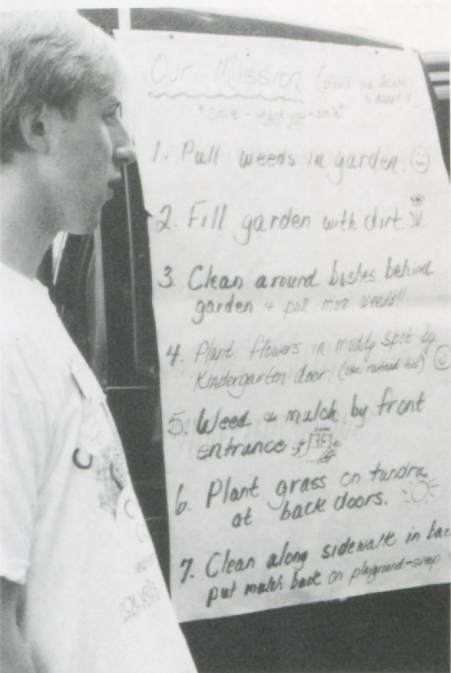 Our Mission (should you decide
to accept it)
1. Pull weeds in garden.
2. Fill garden with dirt
3. Clean around bushes behind
garden & pull more weeds!!
4. Plant flowers in muddy spot by
Kindergarten door (use railroad ties)
5. Weed & mulch by front
entrance
6. Plant grass on tundra
at back doors.
7. Clean along sidewalk in back
put mulch back on playground-swap